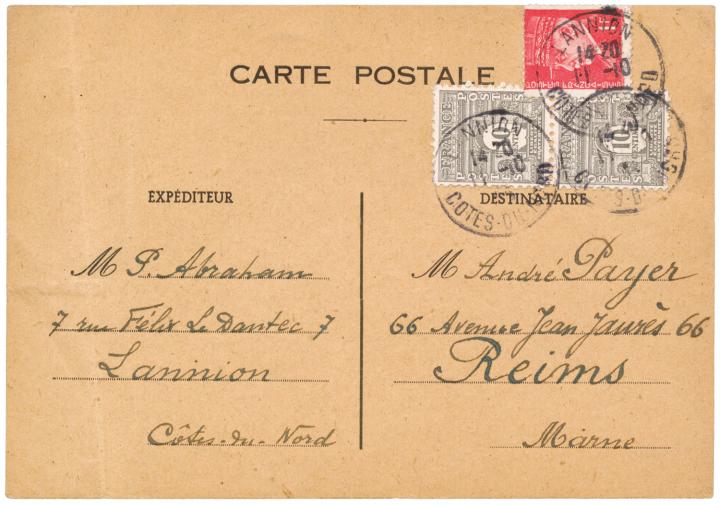 CARTE POSTALE
LANNION
14 20
-10
LANNION
14
COTES-DU-NORD
FRANCE
POSTES
10
FRANCE
POSTES
10
EXPÉDITEUR
M P. Abraham
7 rue Félix Le Dantec 7
Lannion
Côtes-du-Nord
DESTINATAIRE
M André Payer
66 Avenue Jean Jaurès 66
Reims
Marne